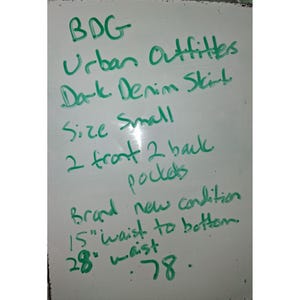 BDG
Urban Outfitters
Dark Denim Skirt
Size Small
2 front 2 back
pockets
Brand new condition
15" waist to bottom
28" waist
.78.